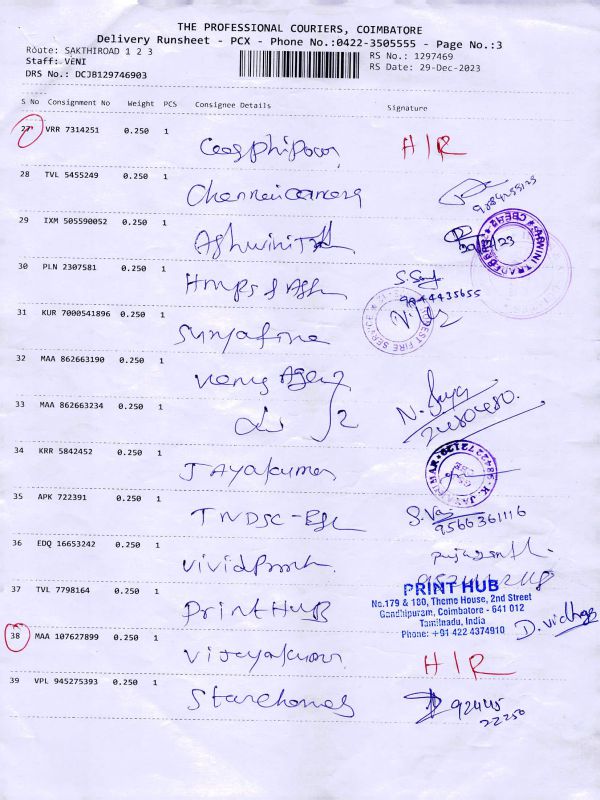 THE PROFESSIONAL COURIERS, COIMBATORE
Delivery Runsheet - PCX - Phone No.:0422-3505555 - Page No.:3
Route: SAKTHIROAD 1 2 3
RS No.: 1297469
Staff: VENI
RS Date: 29-Dec-2023
DRS No.: DCJB129746903
S No Consignment No Weight PCS Consignee Details Signature
27 VRR 7314251 0.250 1 H/R
28 TVL 5455249 0.250 1 Chennai camera
29 IXM 505590052 0.250 1 Ashwini
30 PLN 2307581 0.250 1
9444435655
31 KUR 7000541896 0.250 1 Suryafire
FIRE SERVICE
32 MAA 862663190 0.250 1 Agency
33 MAA 862663234 0.250 1 N. Surya
34 KRR 5842452 0.250 1 JAYakumar
35 APK 722391 0.250 1 TNDSC-
9566361116
36 EDQ 16653242 0.250 1 vivid
37 TVL 7798164 0.250 1 Print HUB
PRINT HUB
No.179 & 180, Theme House, 2nd Street
Gandhipuram, Coimbatore - 641 012
Tamilnadu, India
Phone: +91 422 4374910
D. vidhya
38 MAA 107627899 0.250 1 Vijayakumar H/R
39 VPL 945275393 0.250 1 Starchones 92445
22250